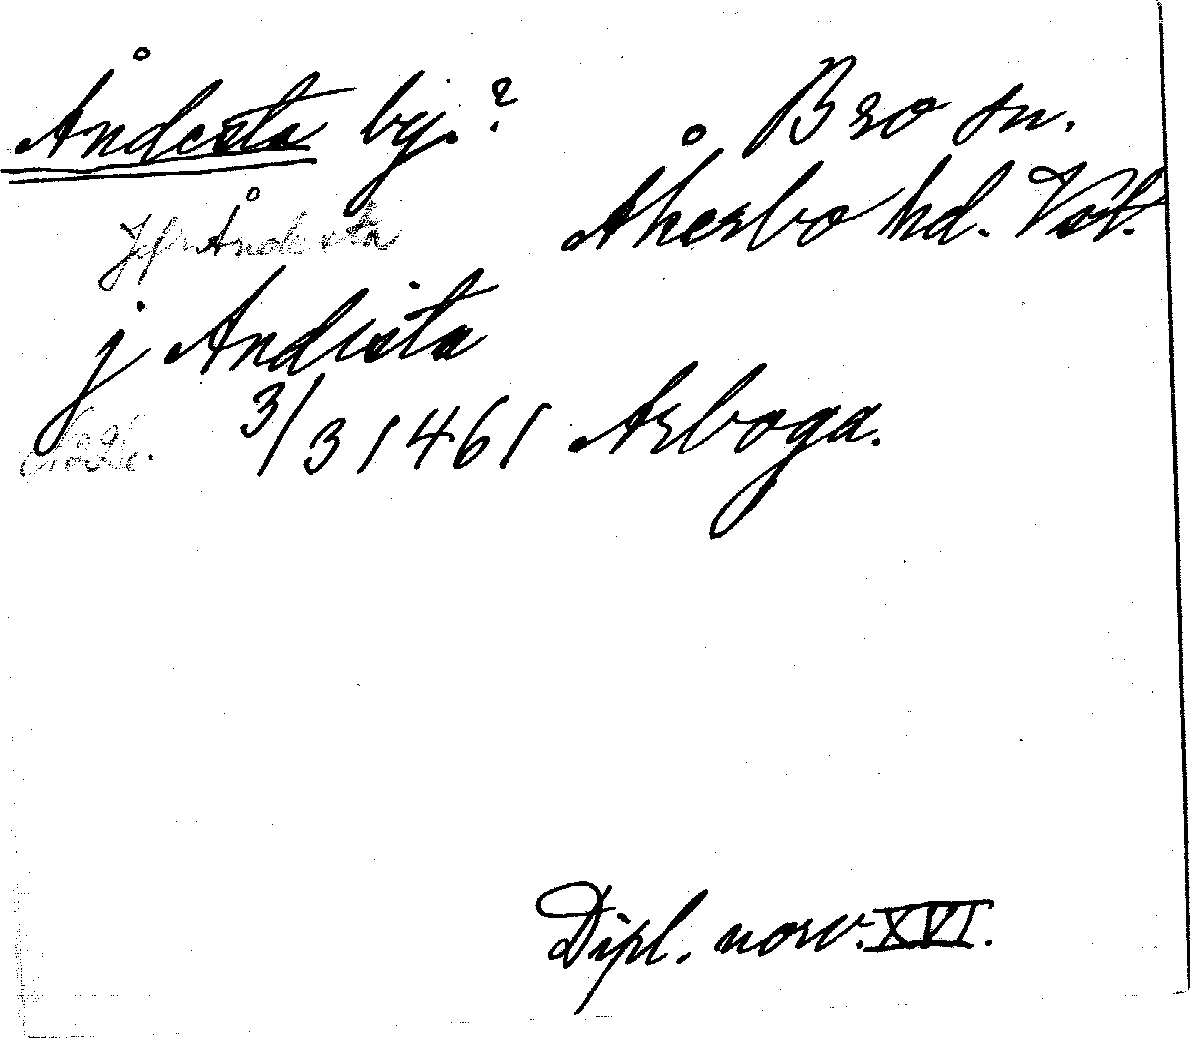 Åndesta by.? Bro sn.
Åkerbo hd. Vstl.
Jfr Åndesta
j Andista
3/3 1461 Arboga.
Dipl. norv. XVI.